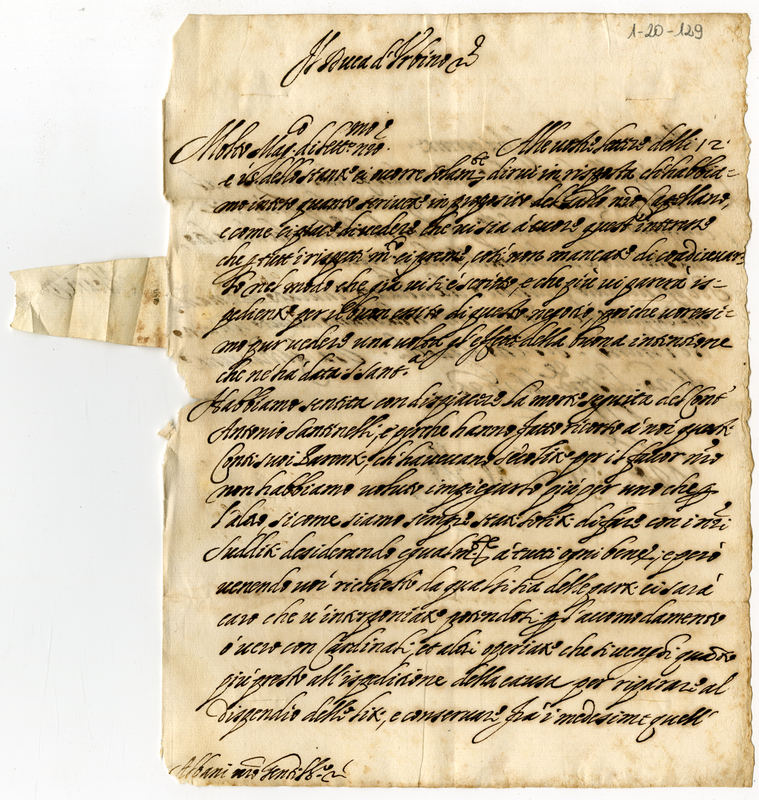 1-20-129
Il Duca d'Urbino
Molto Mag.co dilett.mo n.ro. Alle vostre lettere delli 12
e 15 dello stante ci occorre solam.te dirvi in risposta che habbia-
mo inteso quanto scrivete in proposito del Gallo n.ro Castellano,
e come ci piace di vedere che vi sia à cuore quest'interesse
che tutt'i rispetti m.to ci preme, così non mancate di coadiuvar-
lo nel modo che già vi si è scritto, e che più vi parerà is-
pediente per il buon esito di questo negotio, poiche vorressi-
mo pur vedere una volta gl'effetti della buona intentione
che ne hà data S. Sant.à
Habbiamo sentita con dispiacere la morte seguita del Conte
Antonio Santinelli, e perche hanno fatto ricorso à noi questi
Conti suoi Parenti, ch'havevano lite per il favor n.ro
non habbiamo voluto impiegarlo più per uno che p
l'altro sicome siamo sempre stati soliti di fare con i n.ri
Sudditi desiderando egualm.te à tutti ogni bene, e però
venendo voi richiesto da qualsisia delle parti ci sarà
caro che v'interponiate potendosi p l'accomodamento
ò vero con Cardinali, et altri operiate che si venghi quanto
più presto all'ispeditione della causa per riparare al
dispendio delle liti, e conservare frà i medesimi quell'
Albani n.ro